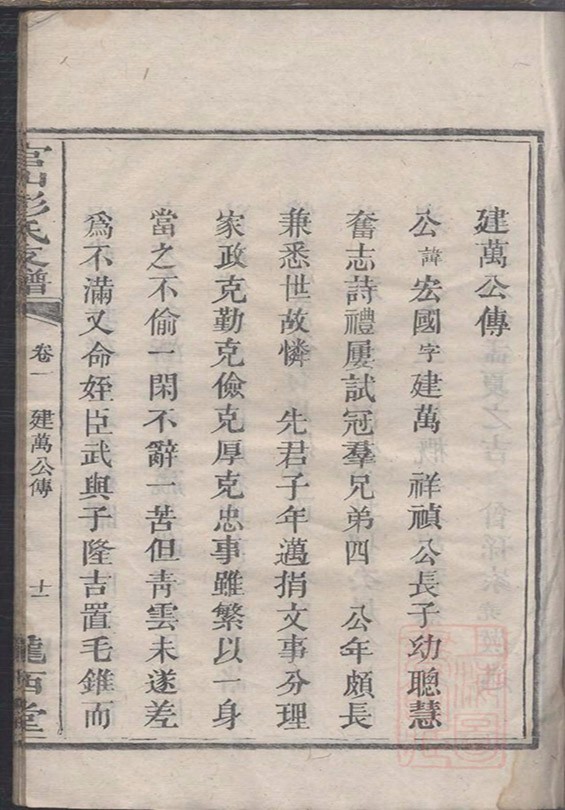 建萬公傳
公諱宏國字建萬 祥禎公長子幼聰慧
奮志詩禮屢試冠羣兄弟四 公年頗長
兼悉世故憐 先君子年邁捐文事分理
家政克勤克儉克厚克忠事雖繁以一身
當之不偷一閑不辭一苦但靑雲未遂差
爲不滿又命姪臣武與子隆吉置毛錐而
官山彭氏支譜
卷一 建萬公傳 十一 隴西堂